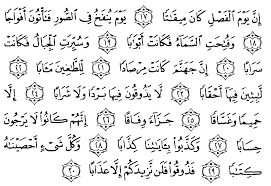 إِنَّ يَوْمَ ٱلْفَصْلِ كَانَ مِيقَـٰتًا ١٧ يَوْمَ يُنفَخُ فِى ٱلصُّورِ فَتَأْتُونَ أَفْوَاجًا
١٨ وَفُتِحَتِ ٱلسَّمَآءُ فَكَانَتْ أَبْوَٰبًا ١٩ وَسُيِّرَتِ ٱلْجِبَالُ فَكَانَتْ
سَرَابًا ٢٠ إِنَّ جَهَنَّمَ كَانَتْ مِرْصَادًا ٢١ لِّلطَّـٰغِينَ مَـَٔابًا ٢٢
لَّـٰبِثِينَ فِيهَآ أَحْقَابًا ٢٣ لَّا يَذُوقُونَ فِيهَا بَرْدًا وَلَا شَرَابًا ٢٤ إِلَّا
حَمِيمًا وَغَسَّاقًا ٢٥ جَزَآءً وِفَاقًا ٢٦ إِنَّهُمْ كَانُوا۟ لَا يَرْجُونَ
حِسَابًا ٢٧ وَكَذَّبُوا۟ بِـَٔايَـٰتِنَا كِذَّابًا ٢٨ وَكُلَّ شَىْءٍ أَحْصَيْنَـٰهُ
كِتَـٰبًا ٢٩ فَذُوقُوا۟ فَلَن نَّزِيدَكُمْ إِلَّا عَذَابًا ٣٠